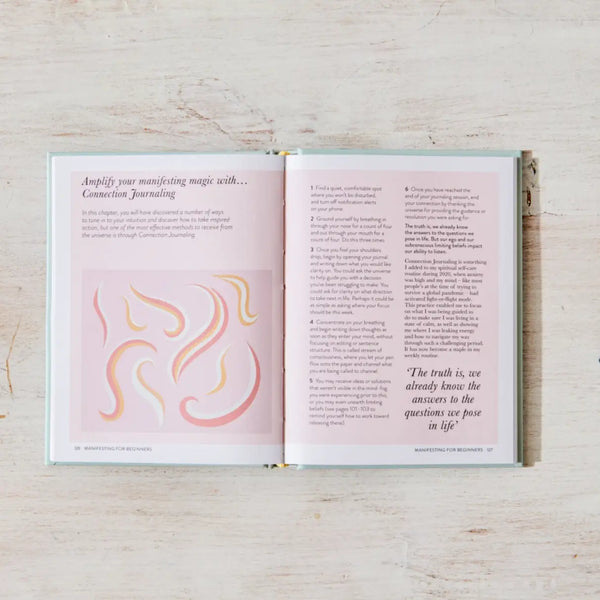 Amplify your manifesting magic with...
Connection Journaling
In this chapter, you will have discovered a number of ways
to tune in to your intuition and discover how to take inspired
action, but one of the most effective methods to receive from
the universe is through Connection Journaling.
126 MANIFESTING FOR BEGINNERS
1 Find a quiet, comfortable spot
where you won't be disturbed,
and turn off notification alerts
on your phone.
2 Ground yourself by breathing in
through your nose for a count of four
and out through your mouth for a
count of four. Do this three times.
3 Once you feel your shoulders
drop, begin by opening your journal
and writing down what you would like
clarity on. You could ask the universe
to help guide you with a decision
you've been struggling to make. You
could ask for clarity on what direction
to take next in life. Perhaps it could be
as simple as asking where your focus
should be this week.
4 Concentrate on your breathing
and begin writing down thoughts as
soon as they enter your mind, without
focusing on editing or sentence
structure. This is called stream of
consciousness, where you let your pen
flow across the paper and channel what
you are being called to channel.
5 You may receive ideas or solutions
that weren't visible in the mind-fog
you were experiencing prior to this,
or you may even unearth limiting
beliefs (see pages 101–103 to
remind yourself how to work toward
releasing these).
6 Once you have reached the
end of your journaling session, end
your connection by thanking the
universe for providing the guidance or
resolution you were asking for.
The truth is, we already know
the answers to the questions we
pose in life. But our ego and our
subconscious limiting beliefs impact
our ability to listen.
Connection Journaling is something
I added to my spiritual self-care
routine during 2020, when anxiety
was high and my mind – like most
people's at the time of trying to
survive a global pandemic – had
activated fight-or-flight mode.
This practice enabled me to focus
on what I was being guided to
do to make sure I was living in a
state of calm, as well as showing
me where I was leaking energy
and how to navigate my way
through such a challenging period.
It has now become a staple in my
weekly routine.
'The truth is, we
already know the
answers to the
questions we pose
in life'
MANIFESTING FOR BEGINNERS 127